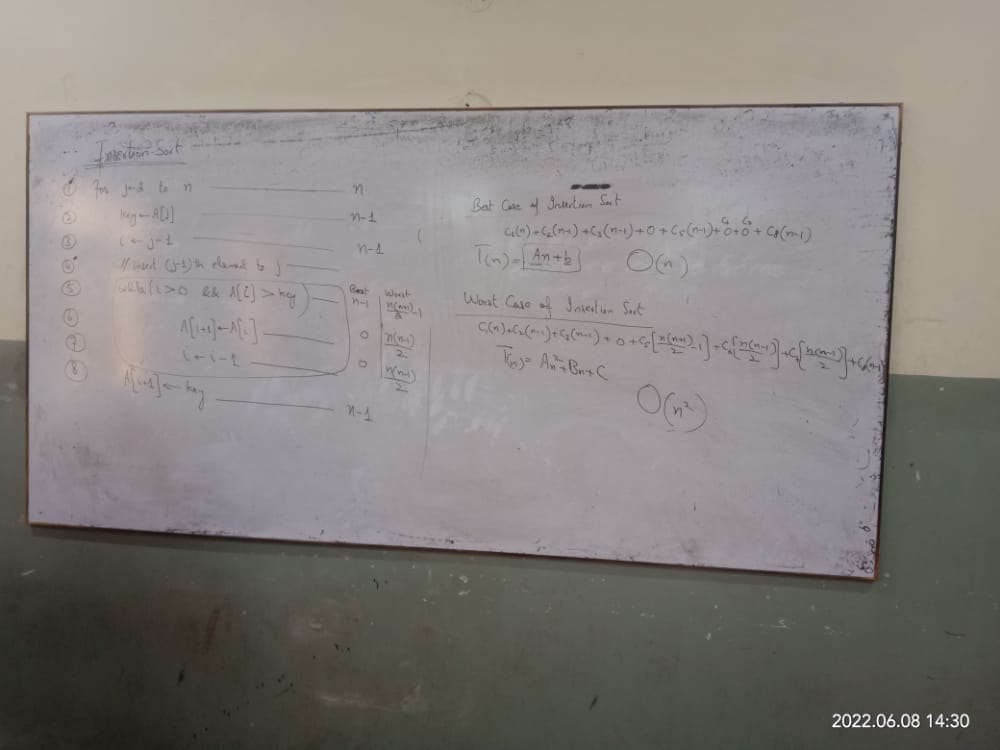 Insertion-Sort
① for j←2 to n ——— n
② key ← A[j] ——— n-1
③ i ← j-1 ——— n-1
④ // insert (j-1)th element to j ———
Best Worst
⑤ while (i > 0 && A[i] > key) —— n-1 n(n+1)/2 - 1
⑥ A[i+1] ← A[i] ——— 0 n(n-1)/2
⑦ i ← i-1 ——— 0 n(n-1)/2
⑧ A[i+1] ← key ——— n-1
Best Case of Insertion Sort
C₁(n)+C₂(n-1)+C₃(n-1)+0+C₅(n-1)+0+0+C₈(n-1)
T(n) = An+b O(n)
Worst Case of Insertion Sort
C₁(n)+C₂(n-1)+C₃(n-1)+0+C₅[n(n+1)/2 -1]+C₆[n(n-1)/2]+C₇[n(n-1)/2]+C₈(n-1)
T(n) = An²+Bn+C
O(n²)
2022.06.08 14:30